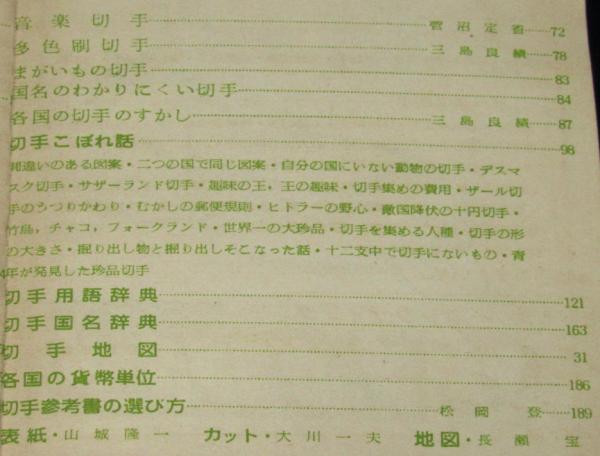 音楽切手 菅沼定省 72
多色刷切手 三島良績 78
まがいもの切手 83
国名のわかりにくい切手 84
各国の切手のすかし 三島良績 87
切手こぼれ話 98
間違いのある図案・二つの国で同じ図案・自分の国にいない動物の切手・デスマ
スク切手・サザーランド切手・趣味の王，王の趣味・切手集めの費用・ザール切
手のうつりかわり・むかしの郵便規則・ヒトラーの野心・敵国降伏の十円切手・
竹島，チャコ，フォークランド・世界一の大珍品・切手を集める人種・切手の形
の大きさ・掘り出し物と掘り出しそこなった話・十二支中で切手にないもの・青
年が発見した珍品切手
切手用語辞典 121
切手国名辞典 163
切手地図 31
各国の貨幣単位 186
切手参考書の選び方 松岡登 189
表紙・山城隆一 カット・大川一夫 地図・長瀬宝